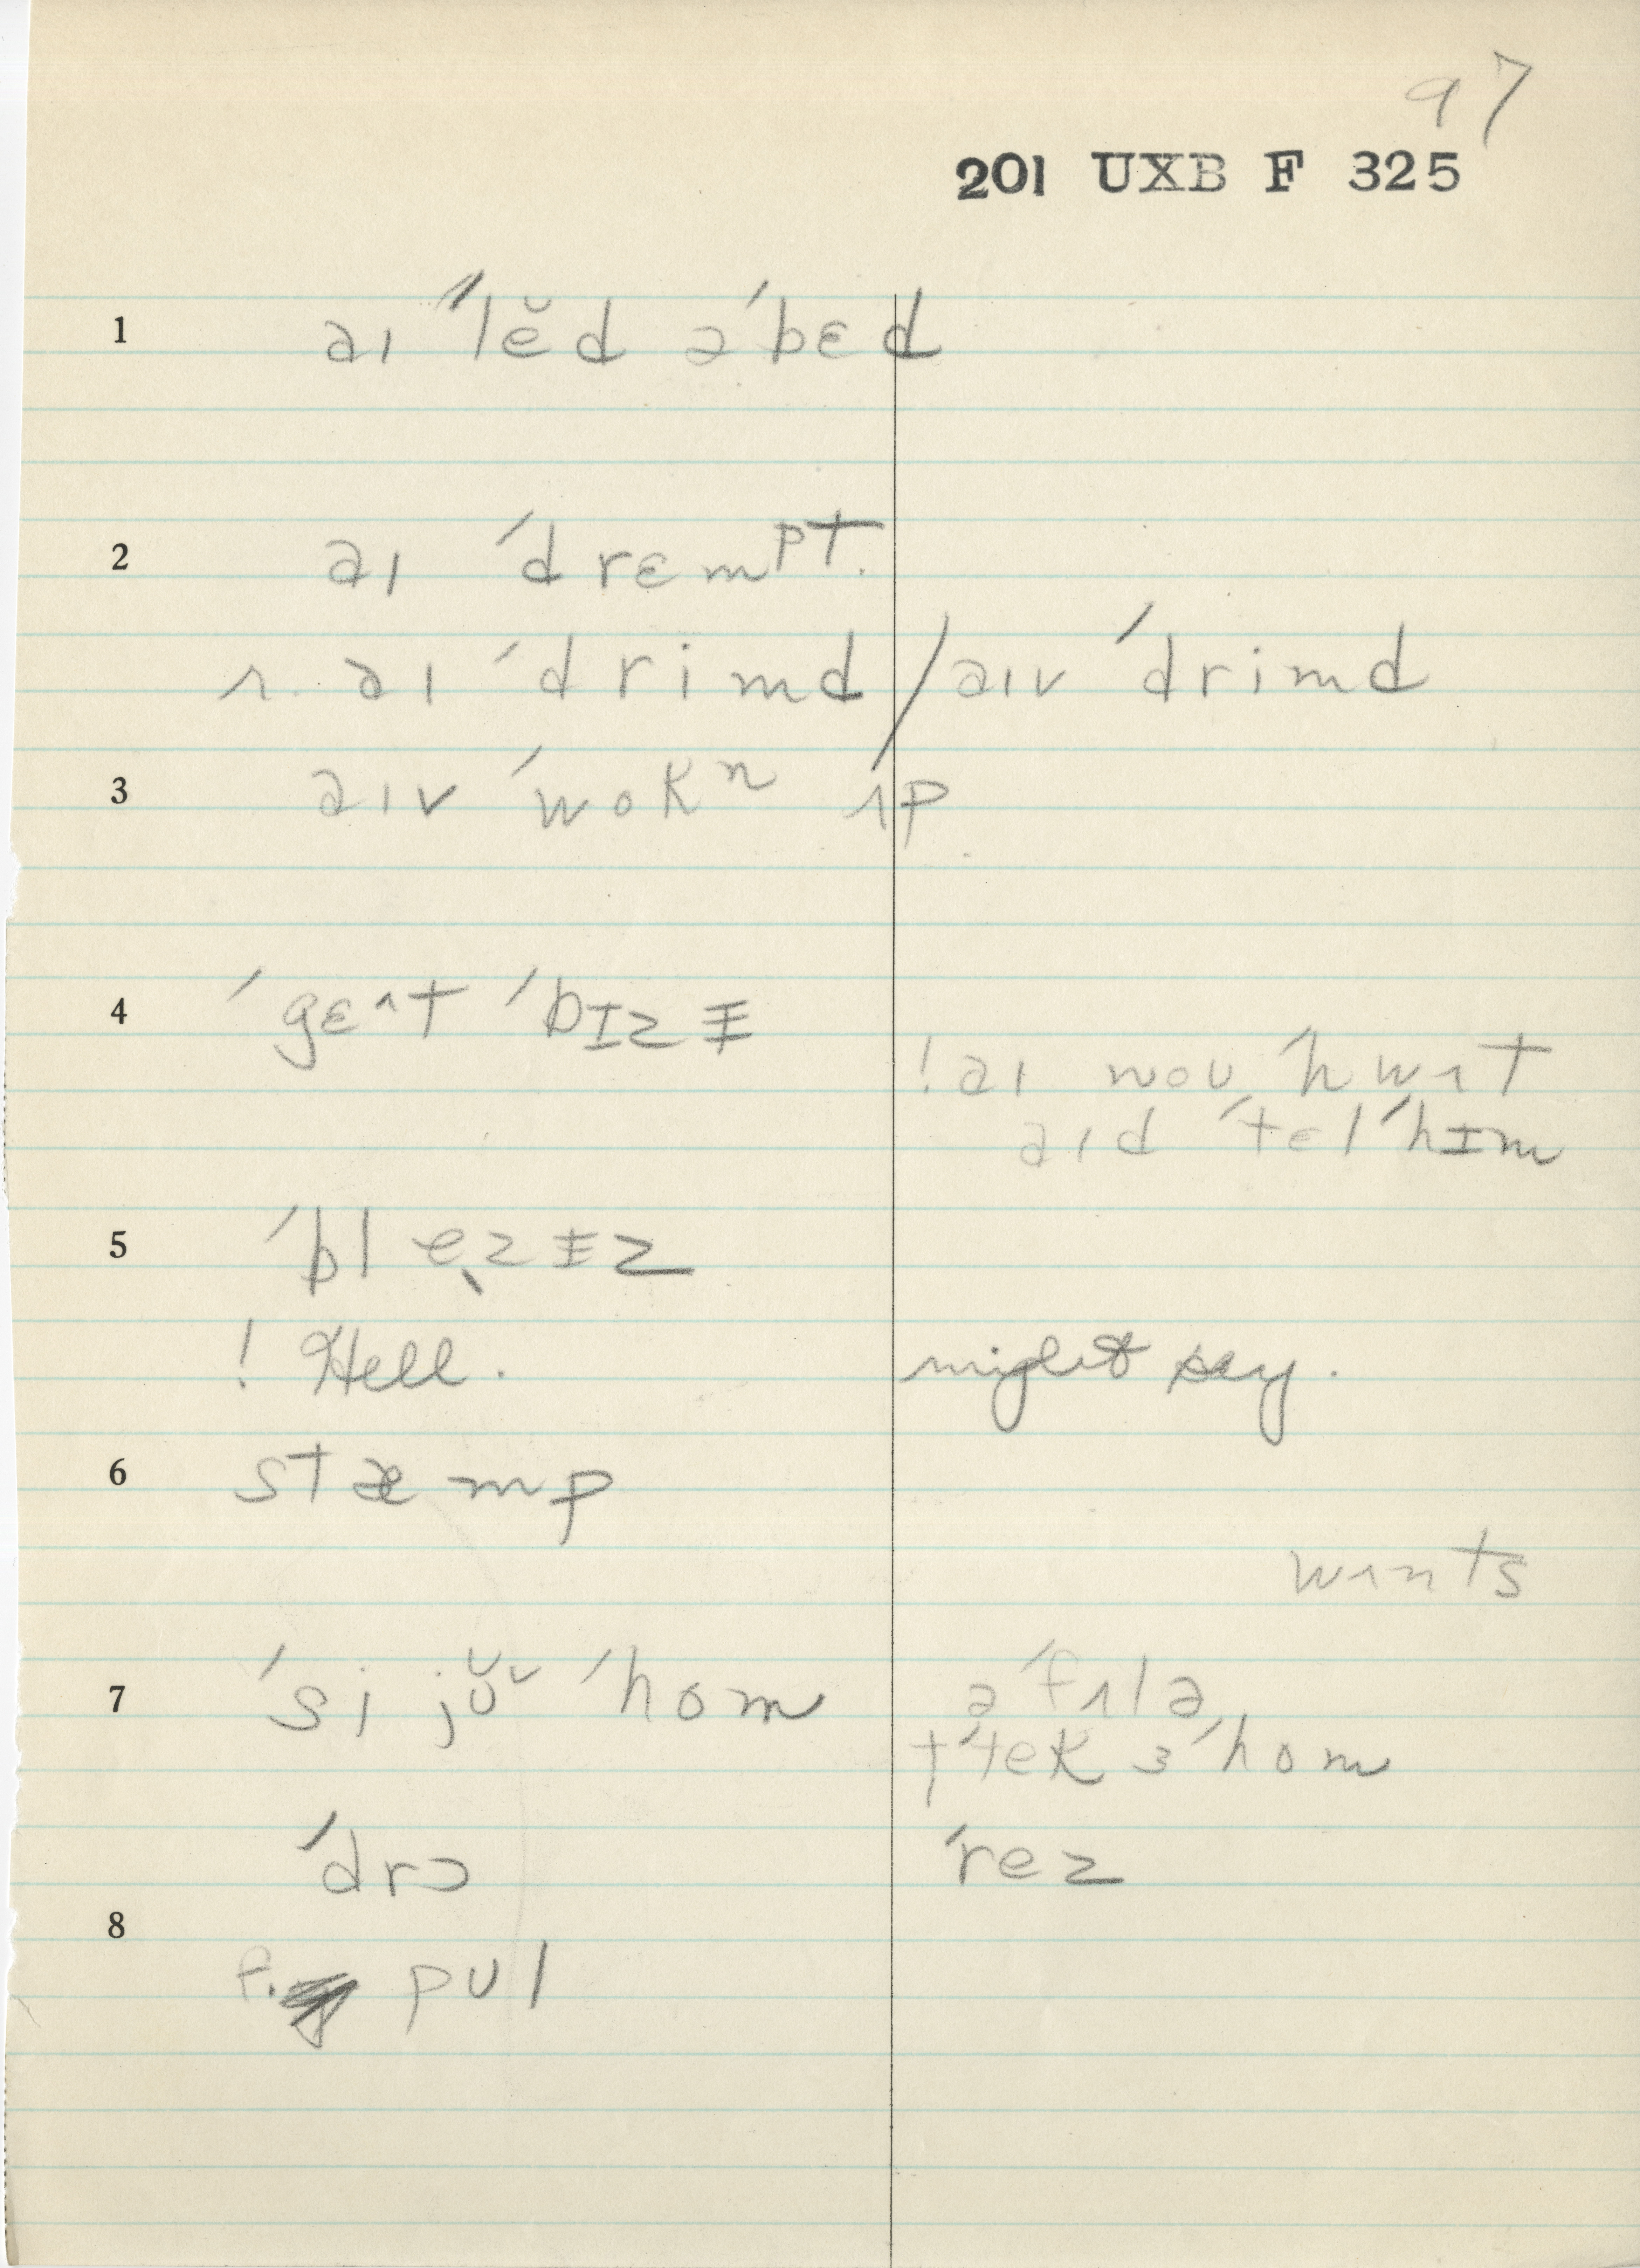 97
201 UXB F 325
1 aɪ ˈˈlĕd əˈbɛd
2 aɪ ˈdrɛmᵖᵗ.
r. aɪ ˈdrimd / aɪv ˈdrimd
3 aɪv ˈwokⁿ ʌp
4 ˈgɛ^t ˈbɪzɨ
! aɪ nou ˈhwʌt
aɪd ˈtɛl ˈhɪm
5 ˈble̖zɨz
! Hell. might say.
6 stæmp
wʌnts
7 ˈsi jʊ̆ᵛ ˈhom ə ˈfɪlə
tˈtek ɜ ˈhom
ˈdrɔ ˈrez
8
P. pʊl